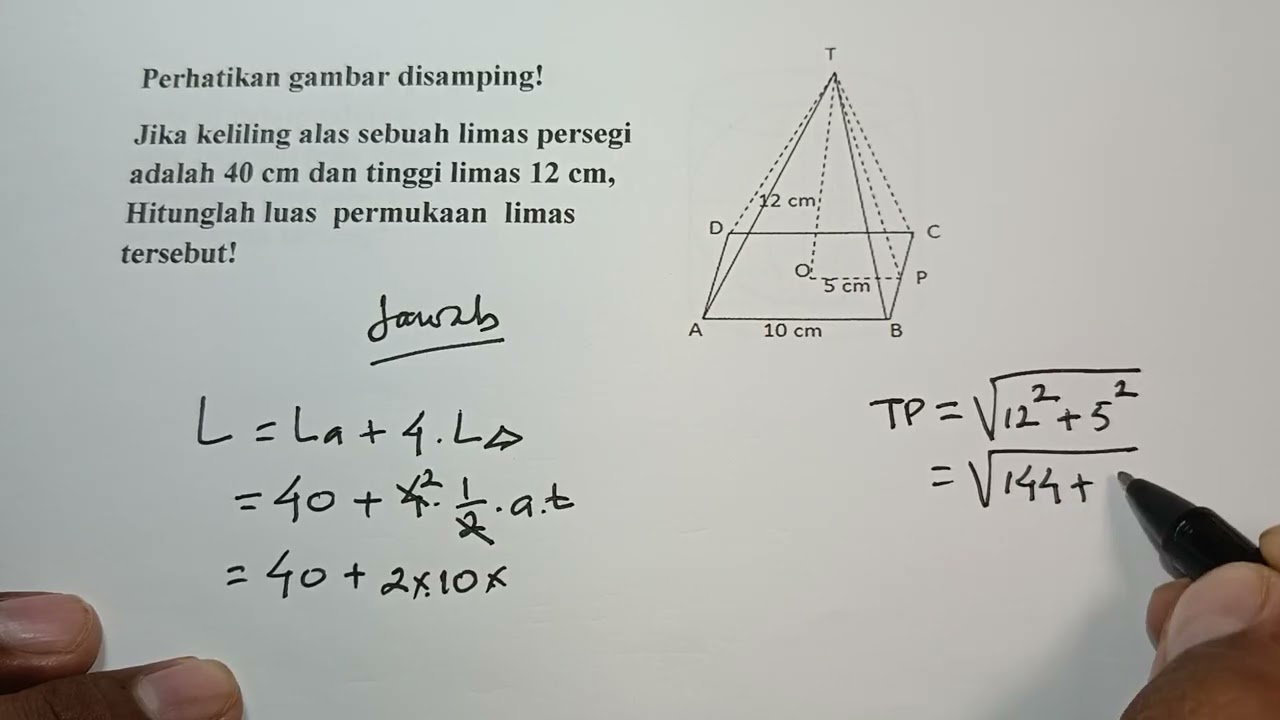 Perhatikan gambar disamping!
Jika keliling alas sebuah limas persegi
adalah 40 cm dan tinggi limas 12 cm,
Hitunglah luas permukaan limas
tersebut!
T
12 cm
D
C
O
5 cm
P
A
10 cm
B
Jawab
L = La + 4.L△
= 40 + 4² . 1/2 . a.t
= 40 + 2x10x
TP = √12² + 5²
= √144 +